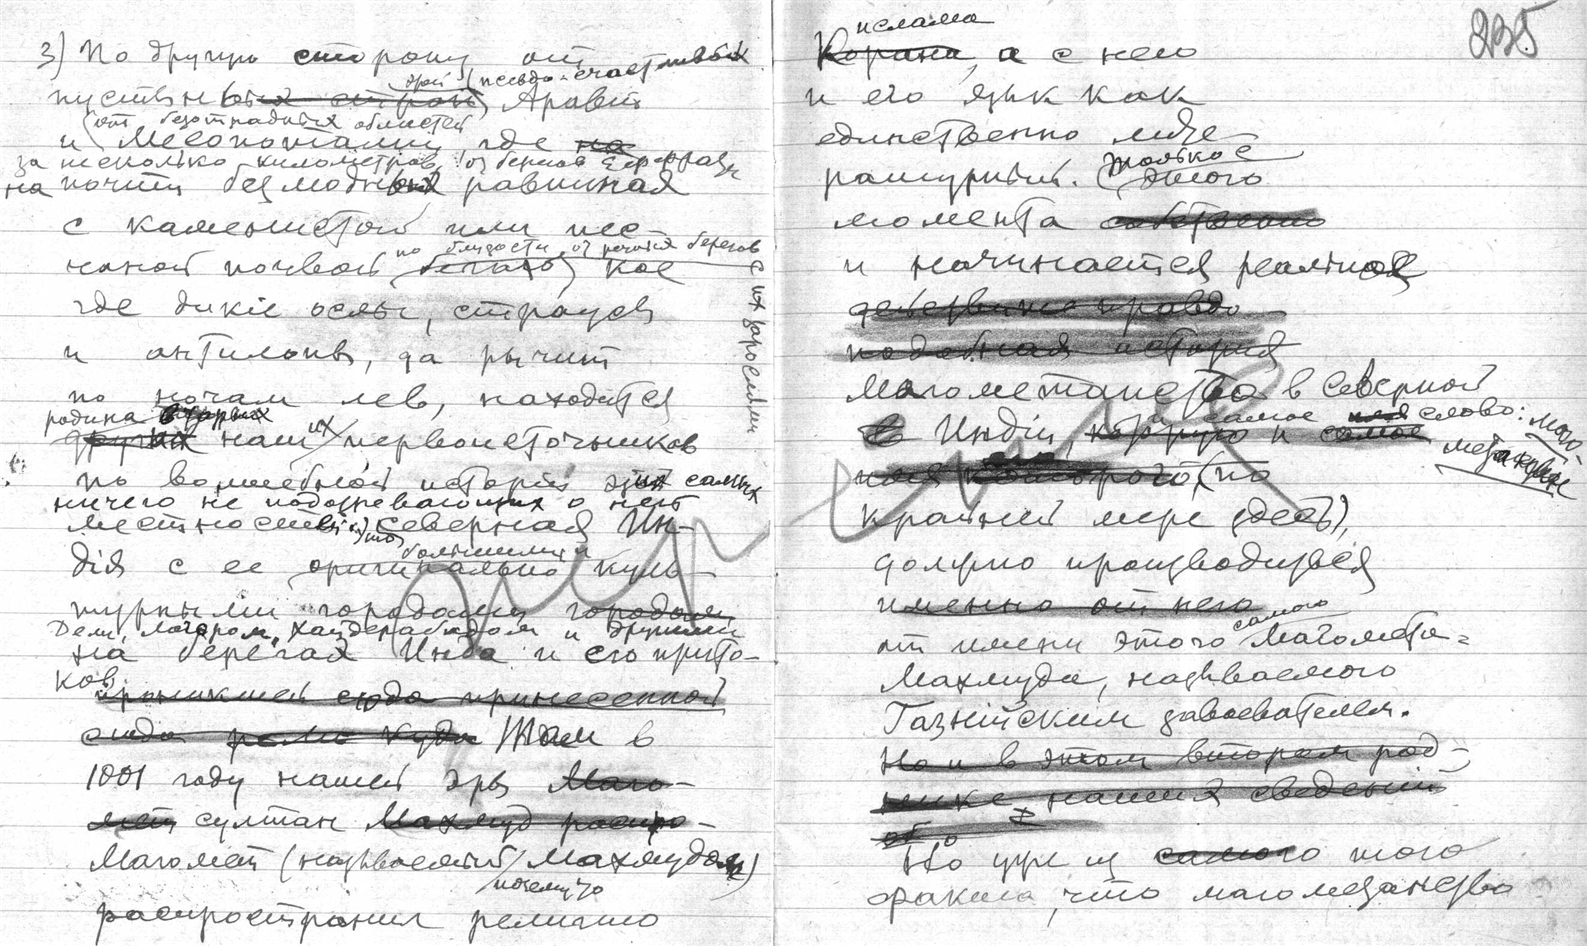 3) По другую сторону от
этой (псевдо-счастливой
пустын ных стран) Аравии
(от безотрадных областей
и Месопотамии, где на
за несколько километров от берегов Ефрата
на почти безлюдных равнинах
с каменистой или пес-
чаной почвой
по близости от речных берегов
с их зарослями
бегают) кое
где дикие ослы, страусы
и антилопы, да рычит
по ночам лев, находится
родина вторых
других наших первоисточников
по волшебной истории этих самых
ничего не подозревающих о ней
местностей, это северная Ин-
дія с ее большими и
оригинально куль-
турными городами городом
Дели, Лагором, Хайдерабадом и другими
на берегах Инда и его прито-
ков
проникшей сюда принесенной
сюда куда Там в
1001 году нашей эры Маго-
мет султан Махмуд распро-
Магомет (называемый Махмудом)
почему то
распространил религию
235
ислама
Корана, а с нею
и его язык как
единственно лите-
ратурный. (только с
этого
момента собственно
и начинается реальная
действительно правдо
подобная история
магометанства в Северной
в Индіи, которую и самое слово: маго-
метанство
имя которого (по
крайней мере здесь),
должно производиться
именно от него
от имени этого самого Магомета-
Махмуда, называемого
Газнійским завоевателем.
Но и в этом втором род-
нике наших сведений
об
Но уже из самого того
факта, что магометанство